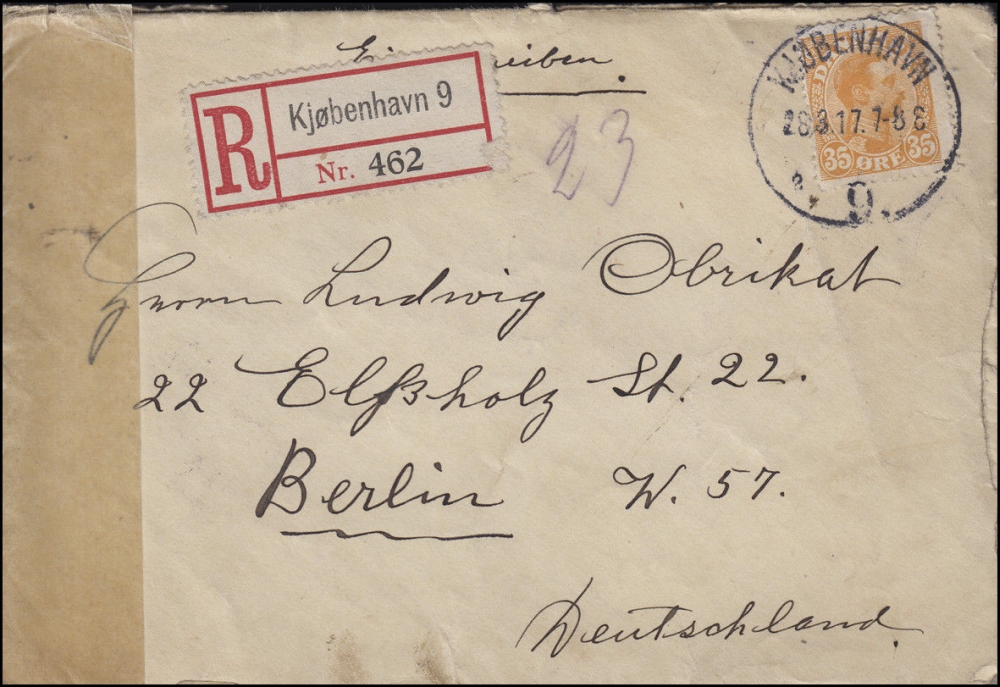 KJØBENHAVN
28.3.17. 7-8 E
9.
35 ØRE 35
R
Kjøbenhavn 9
Nr. 462
23
Herrn Ludwig Obrikat
22 Elßholz St. 22.
Berlin W. 57.
Deutschland.